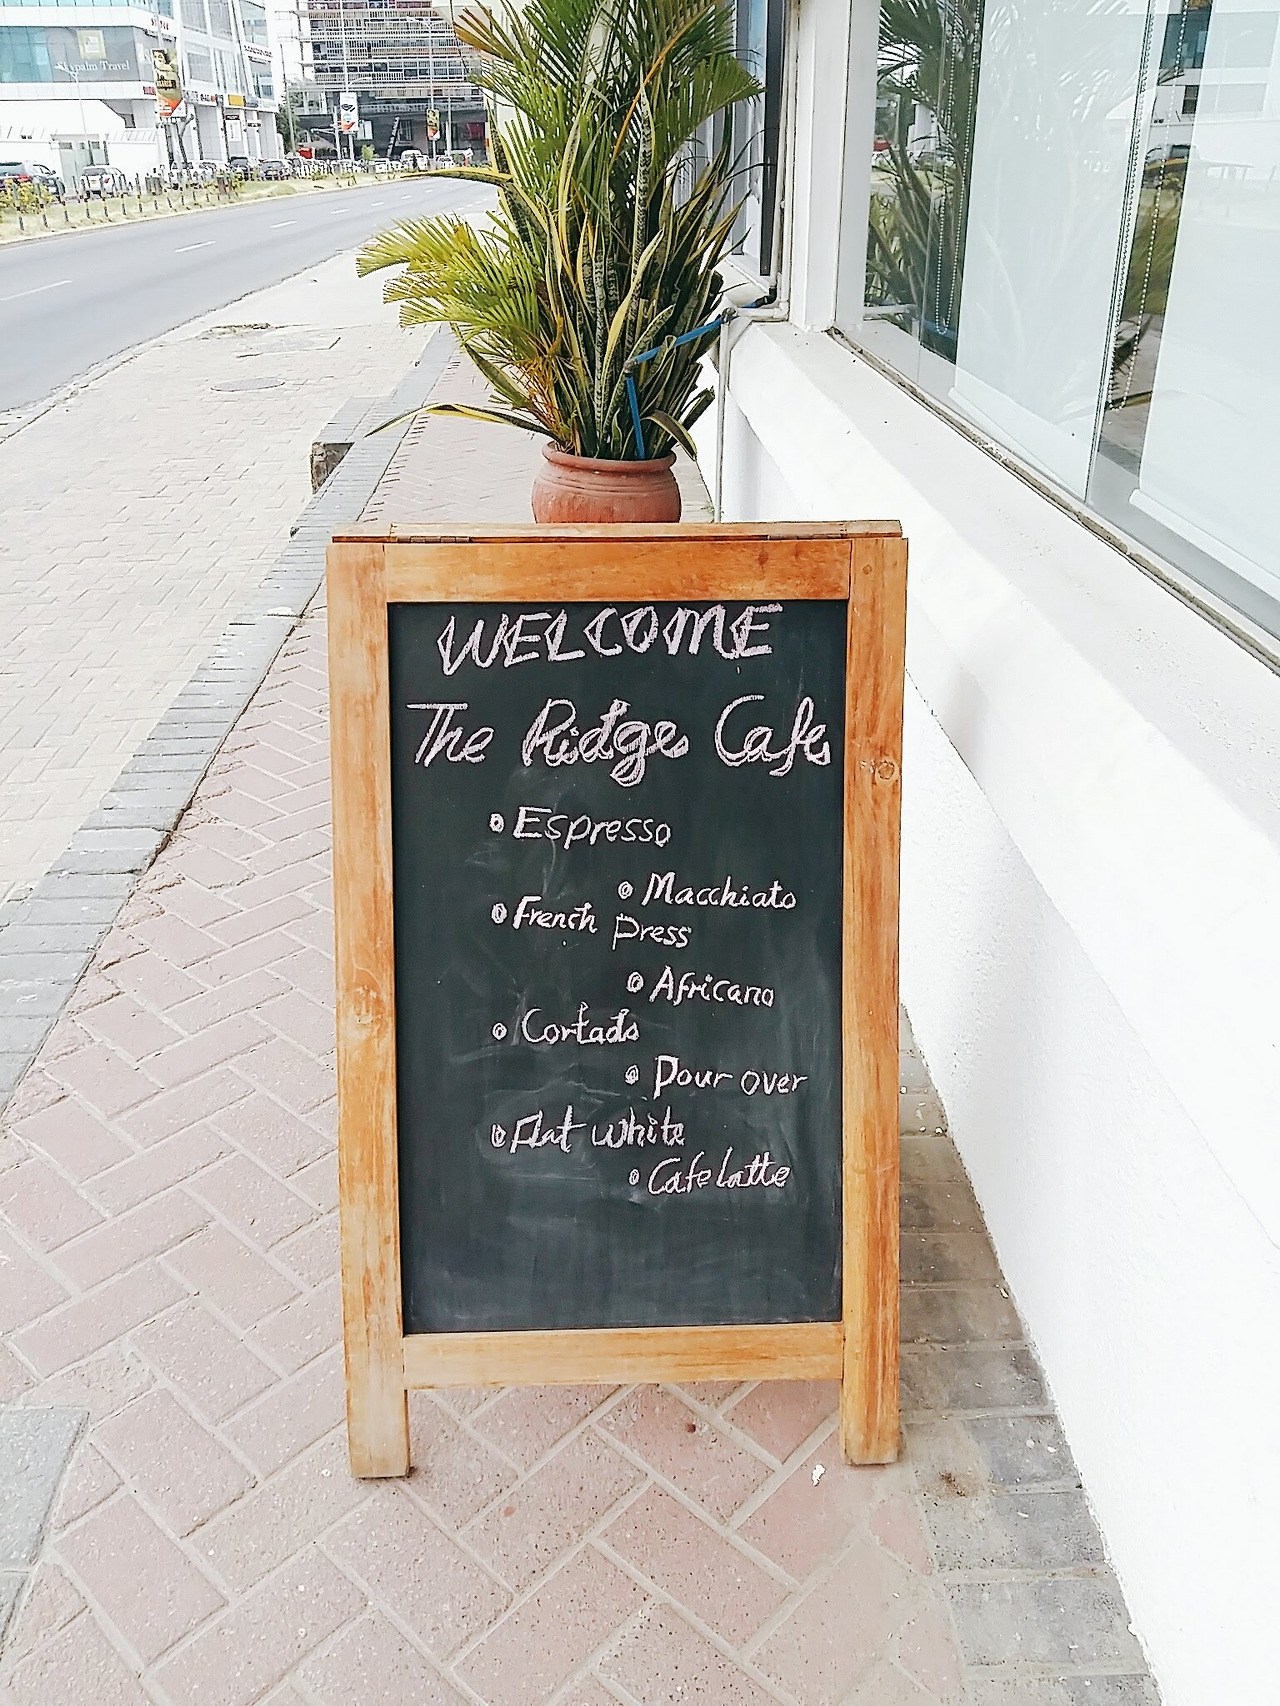 Skypalm Travel
WELCOME
The Ridge Cafe
Espresso
Macchiato
French Press
Africano
Cortado
Pour over
Flat white
Cafe Latte